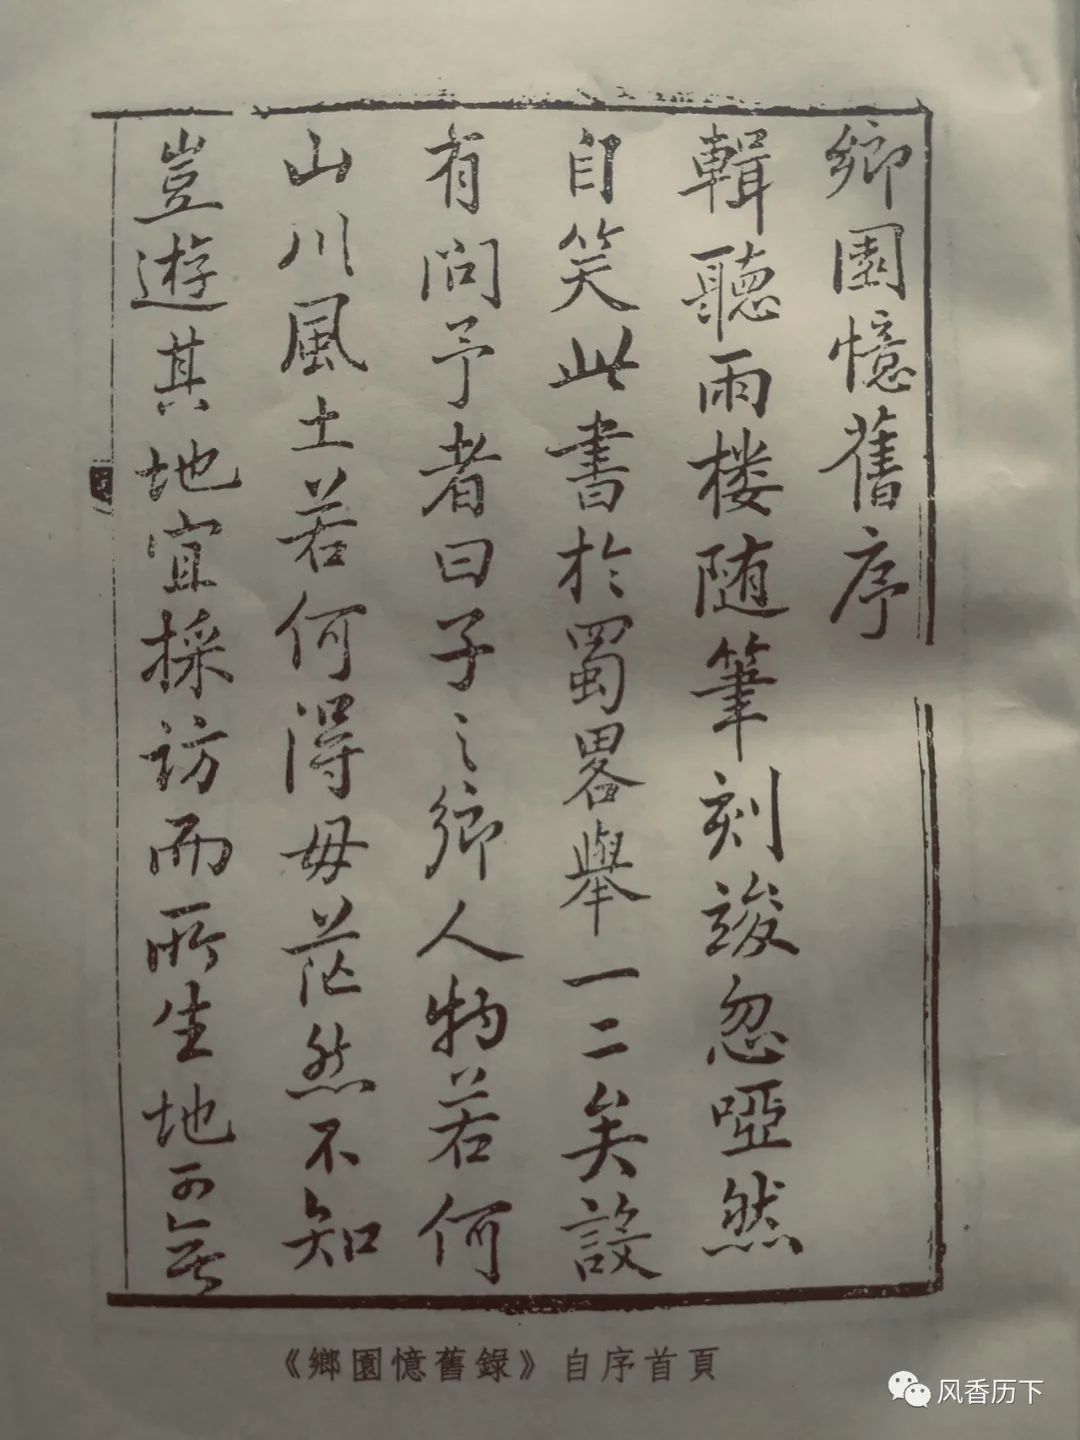 鄉園憶舊序
輯聽雨楼随筆刻竣忽啞然
自笑此書於蜀畧舉一二矣設
有問予者曰子之鄉人物若何
山川風土若何得毋茫然不知
豈遊其地宜採訪而所生地可無
《鄉園憶舊錄》自序首頁
风香历下